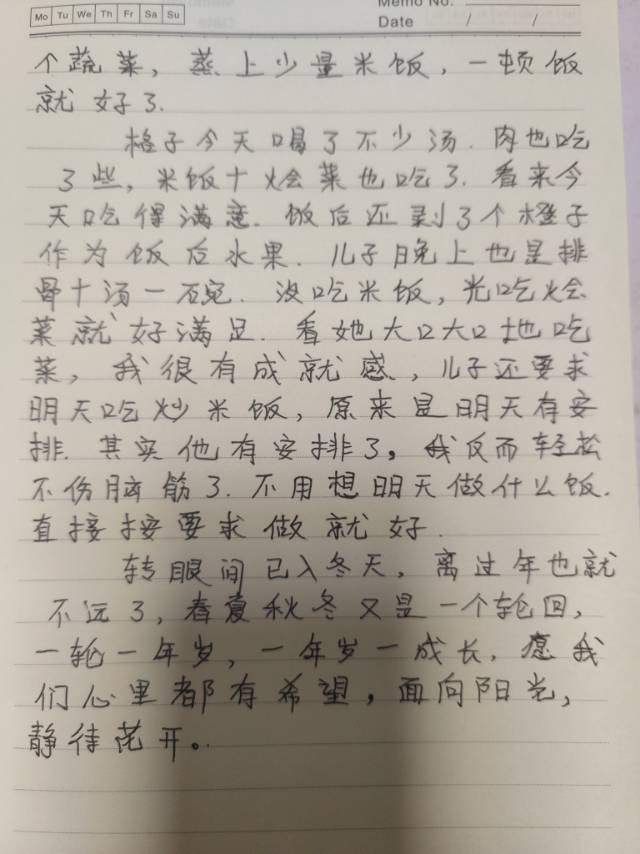 Mo Tu We Th Fr Sa Su
Memo No.
Date / /
个蔬菜，蒸上少量米饭，一顿饭
就好了.
格子今天喝了不少汤.肉也吃
了些，米饭十烩菜也吃了.看来今
天吃得满意.饭后还剥了个橙子
作为饭后水果.儿子晚上也是排
骨十汤一碗.没吃米饭，光吃烩
菜就好满足.看她大口大口地吃
菜，我很有成就感，儿子还要求
明天吃炒米饭，原来是明天有安
排.其实他有安排了，我反而轻松
不伤脑筋了.不用想明天做什么饭.
直接按要求做就好.
转眼间已入冬天，离过年也就
不远了，春夏秋冬又是一个轮回，
一轮一年岁，一年岁一成长.愿我
们心里都有希望，面向阳光，
静待花开。